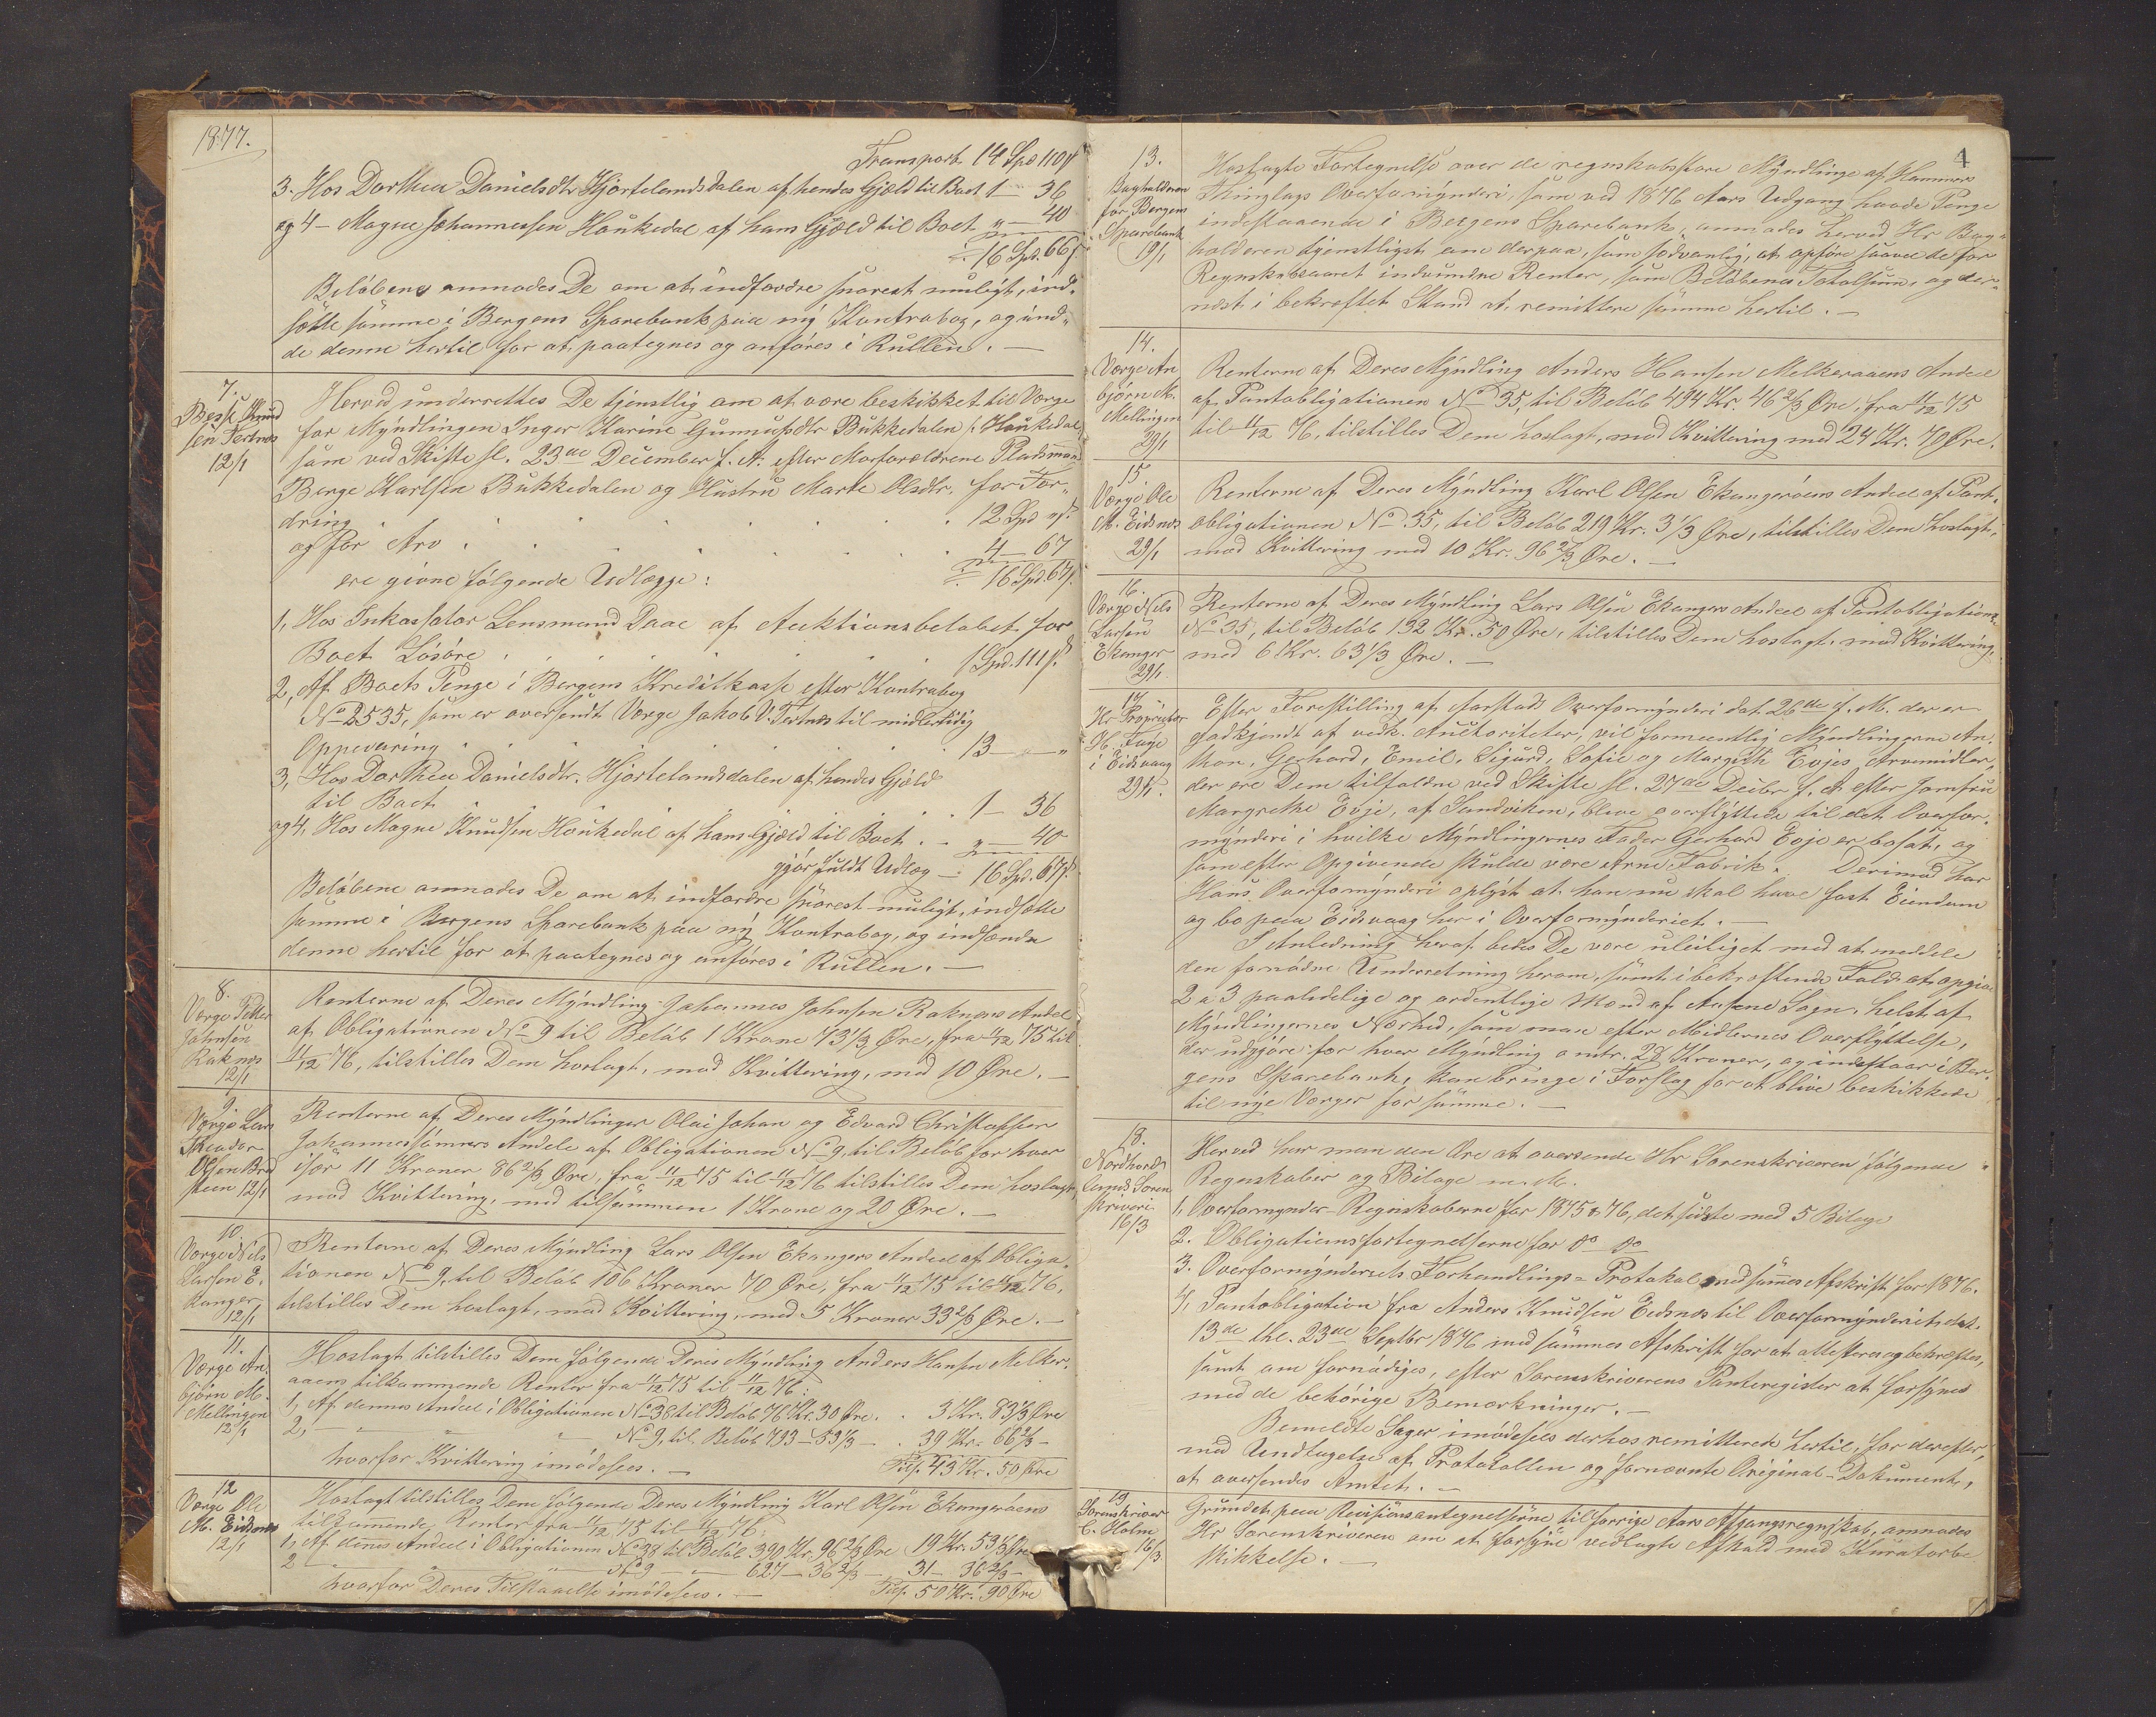 1877.
Transport. 14 Spd 110 ß
3. Hos Dorthea Danielsdtr Hjortelandsdalen af hendes Gjæld til Boet 1 - 36
og 4 - Magne Johannessen Haukedal af hans Gjæld til Boet „ - 40
16 Spd. 66 ß
Beløbene anmodes De om at indfordre snarest muligt, ind-
sætte samme i Bergens Sparebank paa ny Kontrabog, og ind-
de denne hertil for at paategnes og anføres i Rullen. —
7.
Knud
sen Tertnes
12/1
Herved underrettes De tjenstlig om at være beskikket til Værge
for Myndlingen Inger Karine Bukkedalen Haukedal
som ved Skifte sl. 23de December f. A. efter Morforældrene Pladsmand
Børge Karlsen Bukkedalen og Hustru Marte Olsdtr. for For-
dring 12 Spd „ ß
og for Arv 4 - 67
16 Spd. 67 ß
ere givne følgende Udlægge:
1, Hos Inkassator Lensmand Daae af Auktionsbeløbet for
Boets Løsøre 1 Spd. 111 ß.
2, Af Boets Penge i Bergens Kreditkasse efter Kontrabog
No 2535, som er oversendt Værge Jakob V. Tertnes til midlertidig
Oppevaring 13 - „ - „
3, Hos Dorthea Danielsdtr. Hjortelandsdalen af hendes Gjæld
til Boet 1 - 36
og 4, Hos Magne Knudsen Haukedal af hans Gjæld til Boet „ - 40
gjør fuldt Udlæg - 16 Spd. 67 ß.
Beløbene anmodes De om at indfordre snarest muligt, indsætte
samme i Bergens Sparebank paa ny Kontrabog, og indsende
denne hertil for at paategnes og anføres i Rullen. —
8.
Værge Peder
Johnsen
Raknes
12/1
Renterne af Deres Myndling Johannes Johnsen Raknes Andel
af Obligationen No 9 til Beløb 1 Krone 73 1/3 Øre, fra 11/12 75 til
11/12 76, tilstilles Dem hoslagt, mod Kvittering, med 10 Øre. —
9.
Værge Lars
Theodor
Olsen Brad
steen 12/1
Renterne af Deres Myndlinger Olai Johan og Edvard Christoffer
Johannessønners Andele af Obligationen No 9, til Beløb for hver
især 11 Kroner 86 2/3 Øre, fra 11/12 75 til 11/12 76 tilstilles Dem hoslagt,
mod Kvittering, med tilsammen 1 Krone og 20 Øre. —
10.
Værge Nils
Larsen E-
kanger
12/1
Renterne af Deres Myndling Lars Olsen Ekangers Andeel af Obliga-
tionen No 9, til Beløb 106 Kroner 70 Øre, fra 11/12 75 til 11/12 76,
tilstilles Dem hoslagt, mod Kvittering, med 5 Kroner 33 2/3 Øre. —
11.
Værge An-
bjørn M.
Mellingen
12/1
Hoslagt tilstilles Dem følgende Deres Myndling Anders Hansen Melker-
aaens tilkommende Renter fra 11/12 75 til 11/12 76:
1, Af dennes Andeel i Obligationen No 38 til Beløb 76 Kr. 30 Øre. 3 Kr. 83 1/3 Øre
2, — „ — „ — No 9, til Beløb 793 - 53 1/3 - 39 Kr. 66 2/3 -
hvorfor Kvittering imødesees. — Tils. 43 Kr. 50 Øre
12
Værge Ole
M. Eidsnes
12/1
Hoslagt tilstilles Dem følgende Deres Myndling Karl Olsen Ekangerøens
tilkommende Renter fra 11/12 75 til 11/12 76:
1, Af dennes Andeel i Obligationen No 38 til Beløb 390 Kr. 96 2/3 Øre 19 Kr. 53 1/3 Øre
2 — „ — No 9 — „ — 627 - 36 2/3 - 31 - 36 2/3 -
hvorfor Deres Tilstaaelse imødesees. — Tils. 50 Kr. 90 Øre
4
13.
Bogholderen
for Bergens
Sparebank
19/1
Hoslagte Fortegnelse over de regnskabsførere Myndlinge af Hammers
Thinglags Overformynderi, som ved 1876 Aars Udgang havde Penge
indestaaende i Bergens Sparebank, anmodes herved Hr Bog-
holderen tjenstligst om derpaa, som sædvanlig, at opføre saavel de for
Regnskabsaaret indvundne Renter, som Beløbenes Totalsum, og der-
næst i bekræftet Stand at remittere samme hertil. —
14.
Værge An
bjørn M.
Mellingen
29/1
Renterne af Deres Myndling Anders Hansen Melkeraaens Andeel
af Pantobligationen No 35, til Beløb 494 Kr. 46 2/3 Øre, fra 11/12 75
til 11/12 76, tilstilles Dem hoslagt, mod Kvittering med 24 Kr. 70 Øre.
15
Værge Ole
M. Eidsnes
29/1
Renterne af Deres Myndling Karl Olsen Ekangerøens Andeel af Pant-
obligationen No 35, til Beløb 219 Kr. 3 1/3 Øre, tilstilles Dem hoslagt,
mod Kvittering med 10 Kr. 96 2/3 Øre. —
16.
Værge Nils
Larsen
Ekanger
29/1
Renterne af Deres Myndling Lars Olsen Ekangers Andeel af Pantobligations
No 35, til Beløb 132 Kr. 50 Øre, tilstilles Dem hoslagt, mod Kvittering,
med 6 Kr. 63 1/3 Øre. —
17
Hr Proprietær
H. Fuge
i Eidsvaag
29/1.
Efter Forestilling af Aarstads Overformynderi dat. 26de f. M. der er
godkjendt af vedk. Auctoriteter, vil formeentlig Myndlingerne An-
thon, Gerhard, Emil, Sigurd, Sofie og Margith Evjes Arvemidler,
der ere Dem tilfaldne ved Skifte sl. 27de Decbr f. A. efter Jomfru
Margrethe Evje, af Sandviken, blive overflyttede til det Overfor-
mynderi i hvilke Myndlingernes Fader Gerhard Evje er bosat, og
som efter Opgivende skulde være Arne Fabrik. Derimod har
Haus Overformynderi oplyst at han nu skal have fast Eiendom
og bo paa Eidsvaag her i Overformynderiet. —
I Anledning heraf bedes De være uleiliget med at meddele
den fornødne Underretning herom, samt i bekræftende Fald at opgive
2 a 3 paalidelige og ordentlige Mænd af Aasene Sogn, helst af
Myndlingernes Nærhed, som man efter Midlernes Overflyttelse,
der udgjøre for hver Myndling omtr. 28 Kroner, og indestaar i Ber-
gens Sparebank, kan bringe i Forslag for at blive beskikkede
til nye Værger for samme. —
18.
Nordhord-
lands Soren
skriveri
16/3
Herved har man den Ære at oversende Hr Sorenskriveren følgende
Regnskaber og Bilage m. M.
1, Overformynder-Regnskaberne for 1875 & 76, det sidste med 5 Bilage
2. Obligationsfortegnelserne for do do
3. Overformynderiets Forhandlings-Protokol med sammes Afskrift for 1876.
4, Pantobligation fra Anders Knudsen Eidsnes til Overformynderiet, dat.
13de thl. 23de Septbr 1876 med sammes Afskrift for at attesteres og bekræftes,
samt om fornødiges, efter Sorenskriverens Panteregister at forsynes
med de behørige Bemærkninger. —
Bemeldte Sager imødesees derhos remitterede hertil, for derefter,
med Undtagelse af Protokollen og fornævnte Original-Dokument,
at oversendes Amtet. —
19
Sorenskriver
C. Holm
16/3
Grundet paa Revisionsantegnelserne til forrige Aars Afgangsregnskab, anmodes
Hr Sorenskriveren om at forsyne vedlagte Afkald med Kuratorbe
skikkelse. —